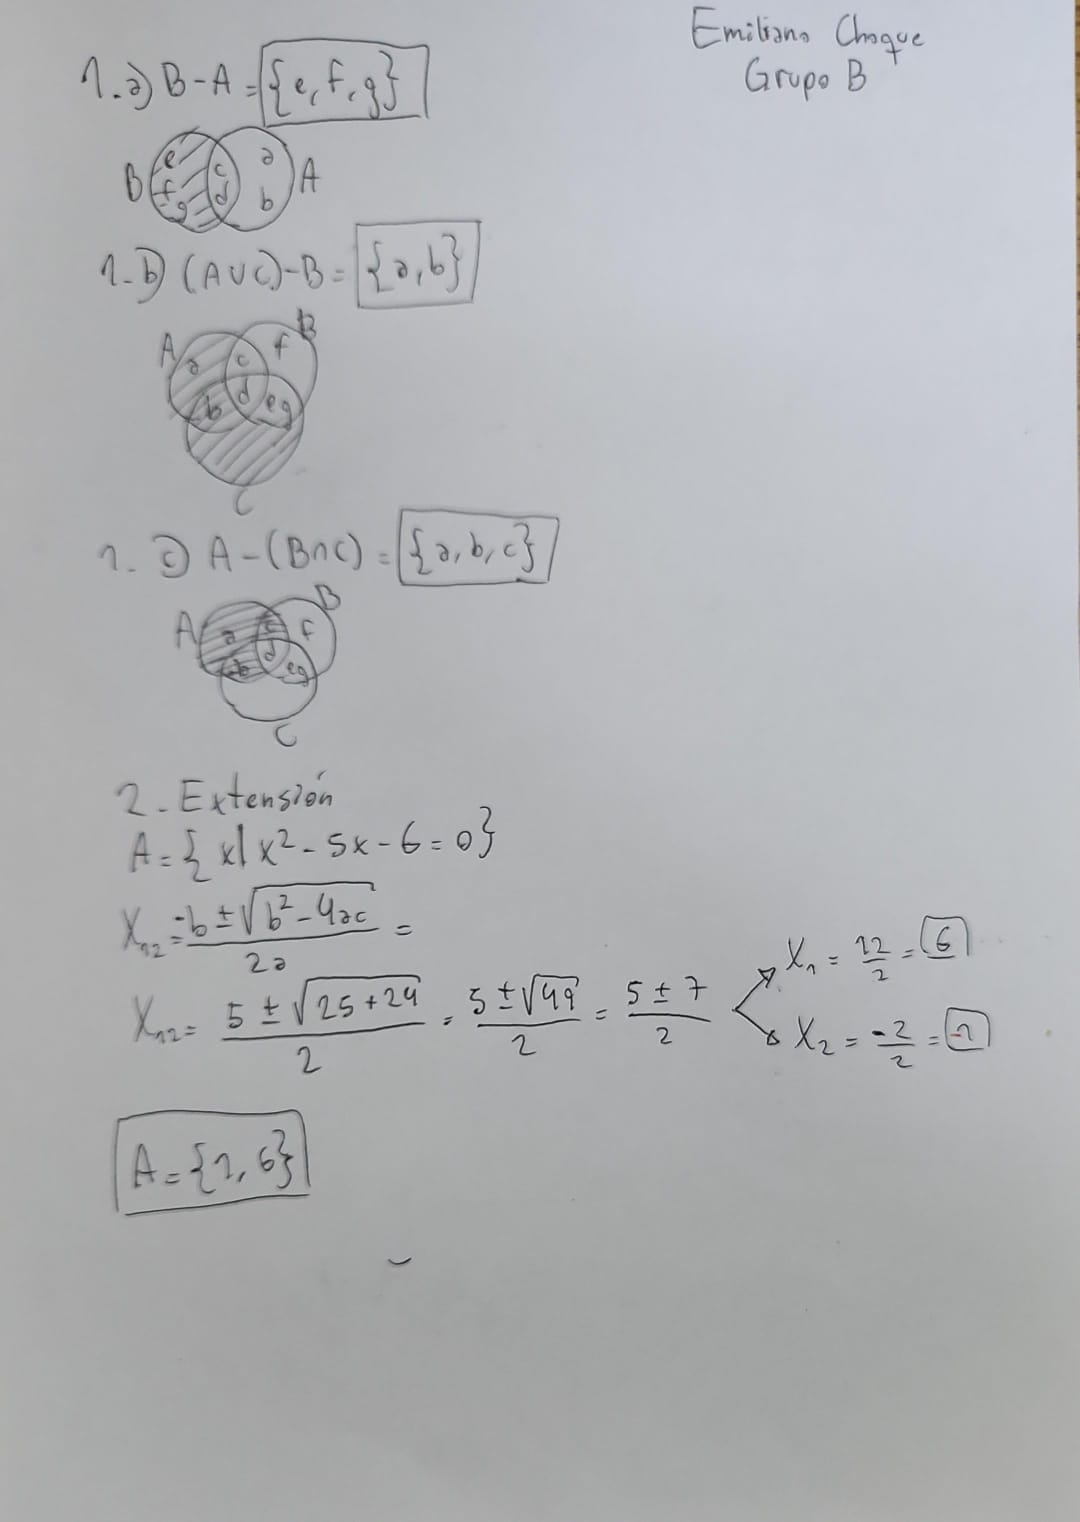 Emiliano Choque
Grupo B
1.a) B-A = {e, f, g}
B e f g c d a b A
1-b) (A∪C)-B = {a, b}
A a c f B
b d eg
C
1. c) A-(B∩C) = {a, b, c}
A a c f B
b d eg
C
2. Extensión
A = { x| x² - 5x - 6 = 0}
X₁₂ = -b ± √b² - 4ac / 2a =
X₁₂ = 5 ± √25 + 24 / 2 = 5 ± √49 / 2 = 5 ± 7 / 2
X₁ = 12/2 = 6
X₂ = -2/2 = -1
A = {1, 6}